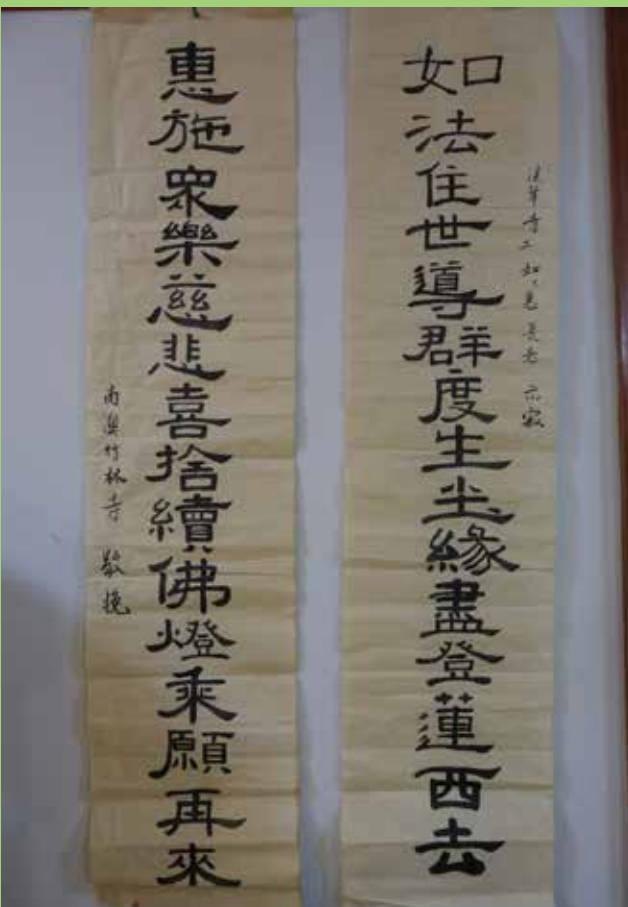 如法住世導群度生尘緣盡登蓮西去
法華寺上如下惠長老 示寂
惠施眾樂慈悲喜捨續佛燈乘願再來
南奧竹林寺 敬挽